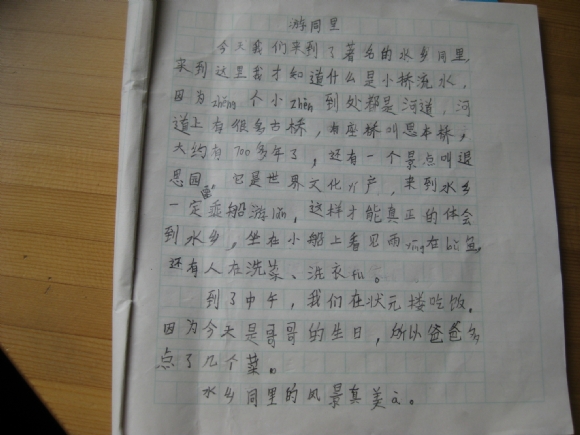 游同里
今天我们来到了著名的水乡同里,
来到这里我才知道什么是小桥流水,
因为zhěng个小zhèn到处都是河道,河
道上有很多古桥,有座桥叫思本桥,
大约有700多年了,还有一个景点叫退
思园,它是世界文化yí产,来到水乡
一定乘船游河,这样才能真正的体会
到水乡,坐在小船上看见雨yīng在bǔ鱼,
还有人在洗菜、洗衣fu。
到了中午,我们在状元楼吃饭,
因为今天是哥哥的生日,所以爸爸多
点了几个菜。
水乡同里的风景真美à。